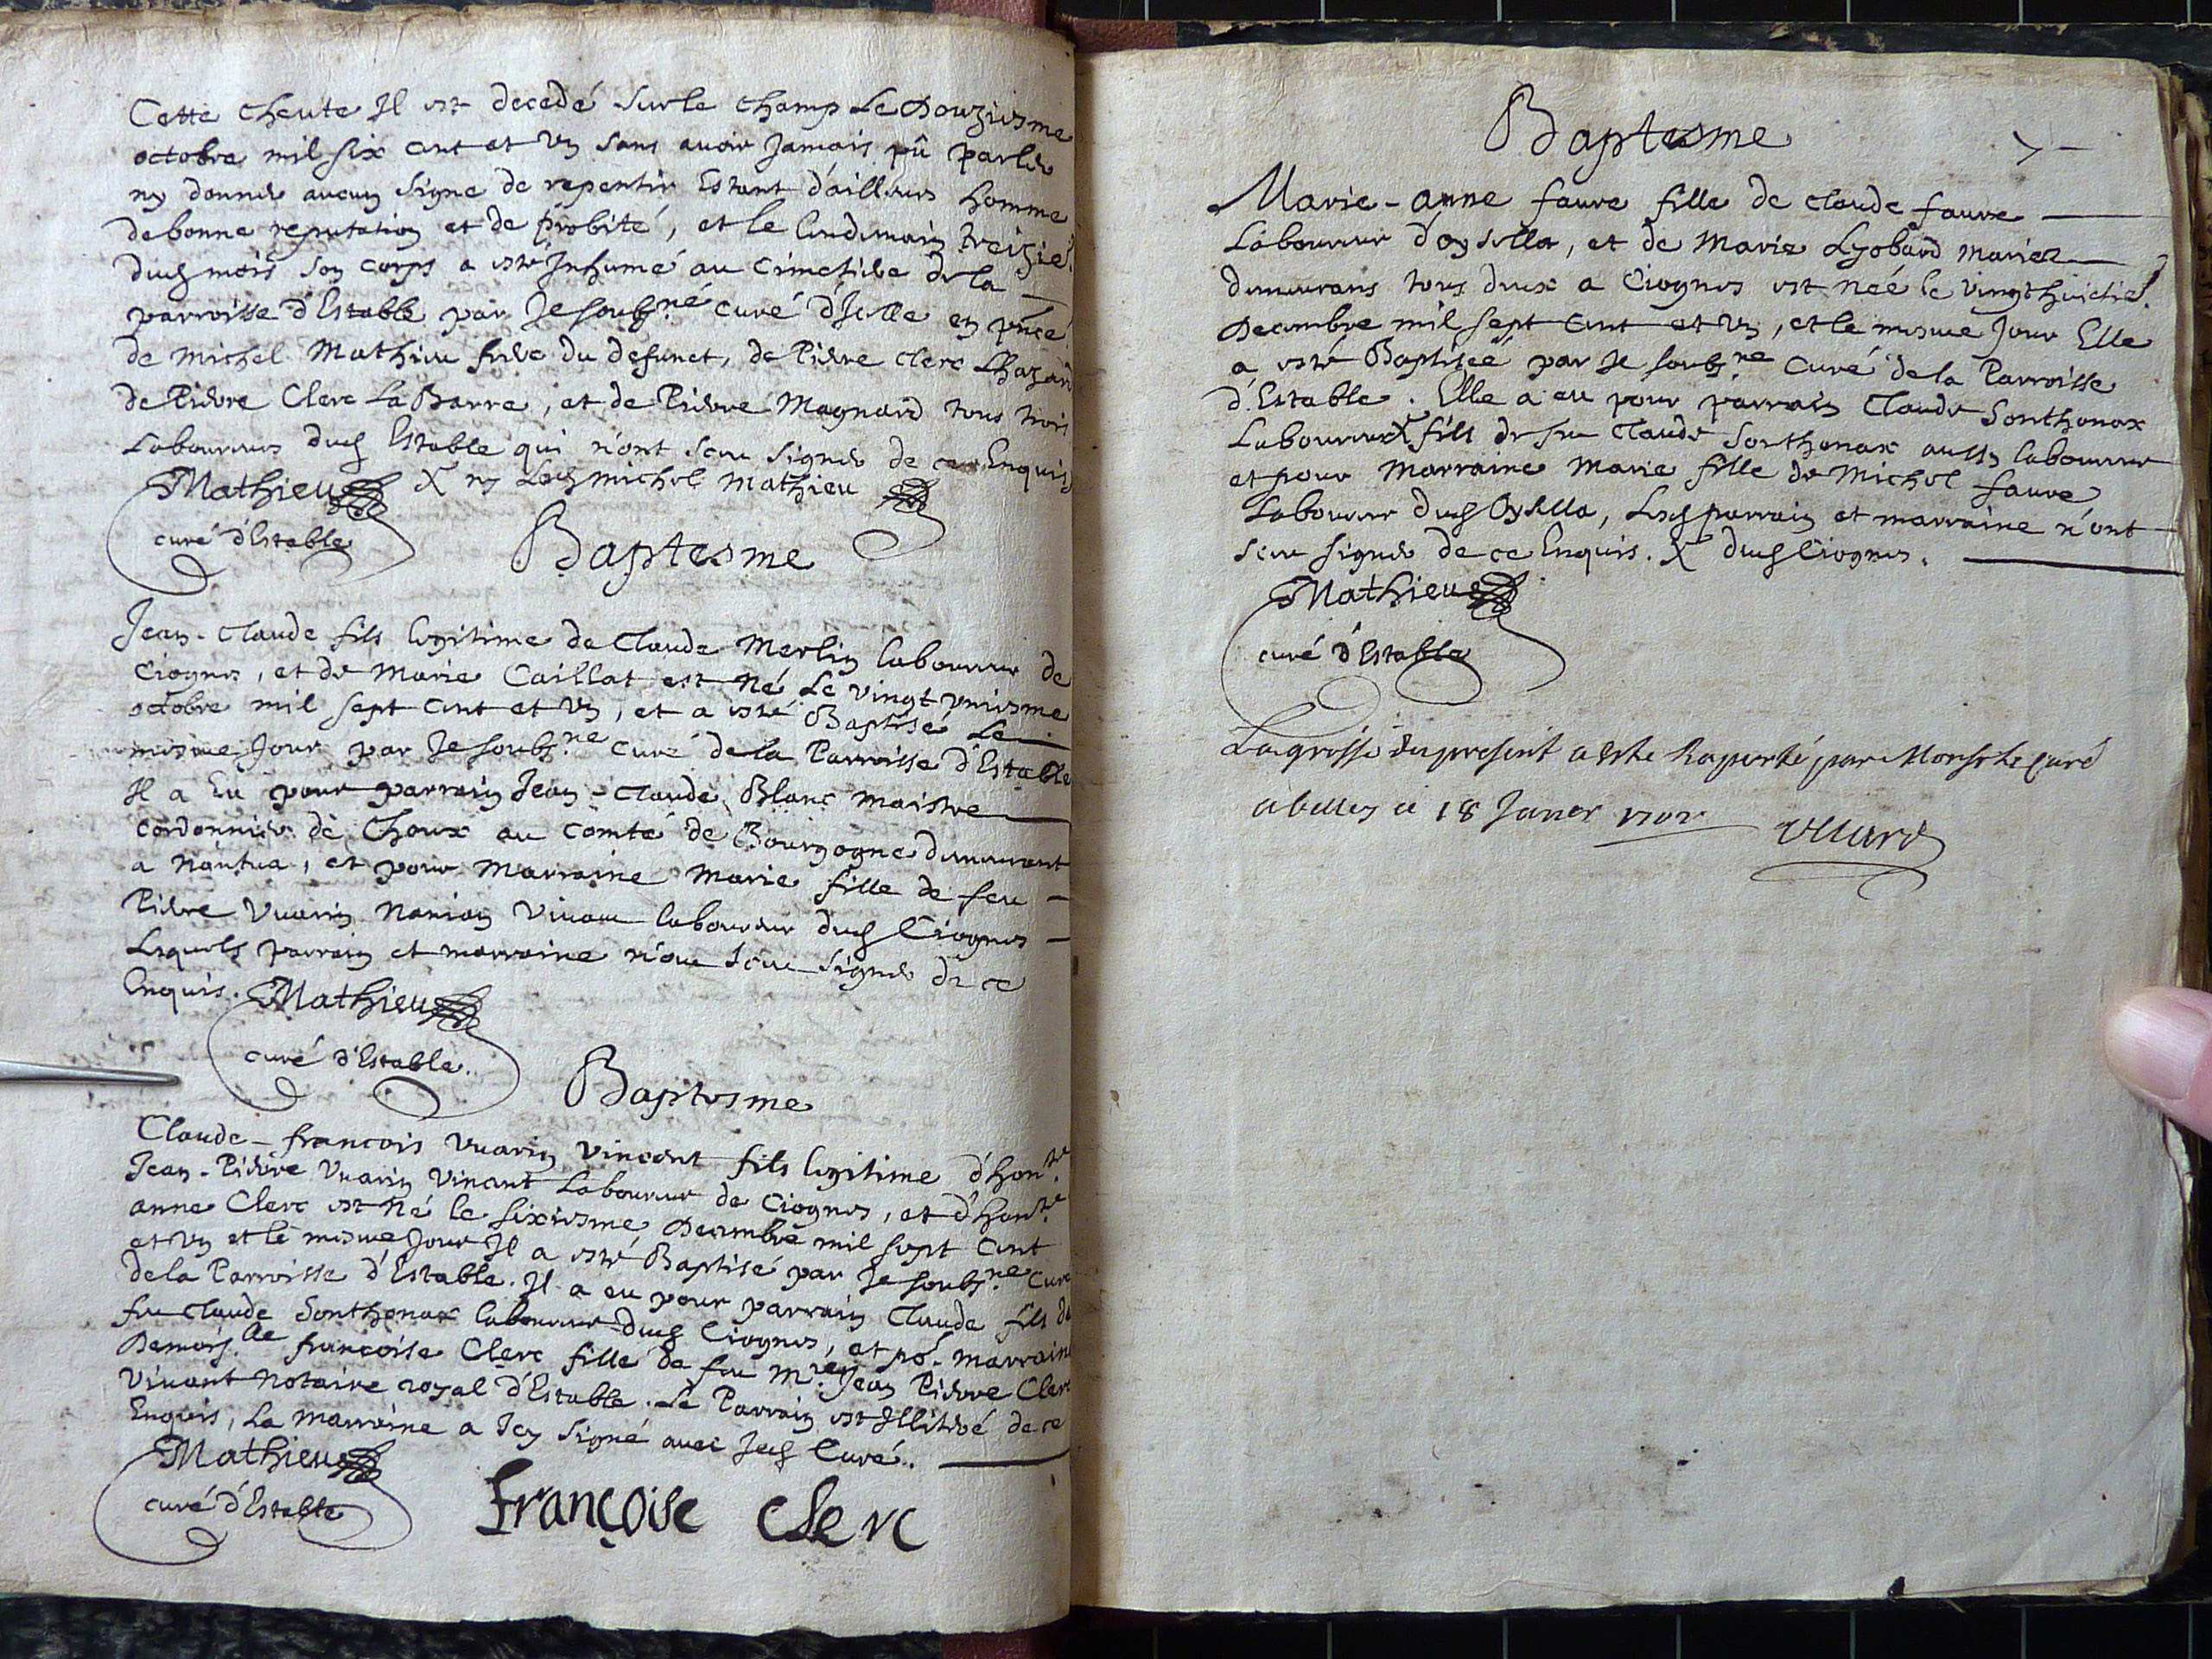 Cette cheute Il est decedé sur le champ Le Douziesme
octobre mil six cent et un sans avoir Jamais pû parler
ny donner aucun signe de repentir Estant d'ailleurs homme
de bonne reputation et de probité, et le lendemain treizie.
dud mois son corps a esté Inhumé au cimetiere de la
parroisse d'Estable par Je soubs.né curé d'Icelle en pnce
de Michel Mathieu frere du defunct, de Pierre Clerc Lhazard
de Pierre Clerc La Barre, et de Pierre Magnard tous trois
Laboureurs dud Estable qui n'ont sceu signer de ce Enquis
Mathieu X ny Led michel Mathieu
curé d'Estable
Baptesme
Jean-Claude fils legitime de Claude Merlin laboureur de
Ciognes, et de Marie Caillat est né Le vingt uniesme
octobre mil sept cent et un, et a esté Baptisé Le
mesme Jour par Je soubs.né curé de la Parroisse d'Estable
Il a Eu pour parrain Jean-Claude Blanc maistre
cordonnier de Choux au comté de Bourgogne demeurant
a Nantua, et pour Marraine Marie fille de feu
Pierre Vuarin Nanian vivant laboureur dud Ciognes
Lesquels parrain et marraine n'ont sceu signer de ce
Enquis. Mathieu
curé d'Estable.
Baptesme
Claude-francois Vuarin vincent fils legitime d'hon.te
Jean-Pierre Vuarin Vincent Laboureur de Ciognes, et d'hon.te
anne Clerc est né le sixiesme Decembre mil sept cent
et un et le mesme Jour Il a esté Baptisé par Je soubs.né Curé
de la Parroisse d'Estable. Il a eu pour parrain Claude fils de
feu Claude Sonthonax laboureur dud Ciognes, et po.r marraine
Demois.lle francoise Clerc fille de feu M.re Jean Pierre Clerc
Vivant Notaire royal d'Estable. Le Parrain est Illitéré de ce
Enquis, La marraine a Icy signé avec Jed Curé.
Mathieu
curé d'Estable
Françoise Clerc
Baptesme
Marie-anne faure fille de claude faure
Laboureur d'Oysella, et de Marie Lyobard mariez
demeurans tous deux a Ciognes est née le vingthuictie.
Decembre mil sept cent et un, et le mesme Jour Elle
a esté Baptisée par Je soubs.né Curé de la Parroisse
d'Estable. Elle a eu pour parrain Claude Sonthonax
Laboureur X fils de feu Claude Sonthonax aussy laboureur
et pour Marraine Marie fille de Michel faure
Laboureur dud Oysella, Lesd parrain et marraine n'ont
sceu signer de ce Enquis. X dud Ciognes.
Mathieu
curé d'Estable
La grosse du present a este Raporté par Monsr le curé
a belley ce 18 Janer 1702